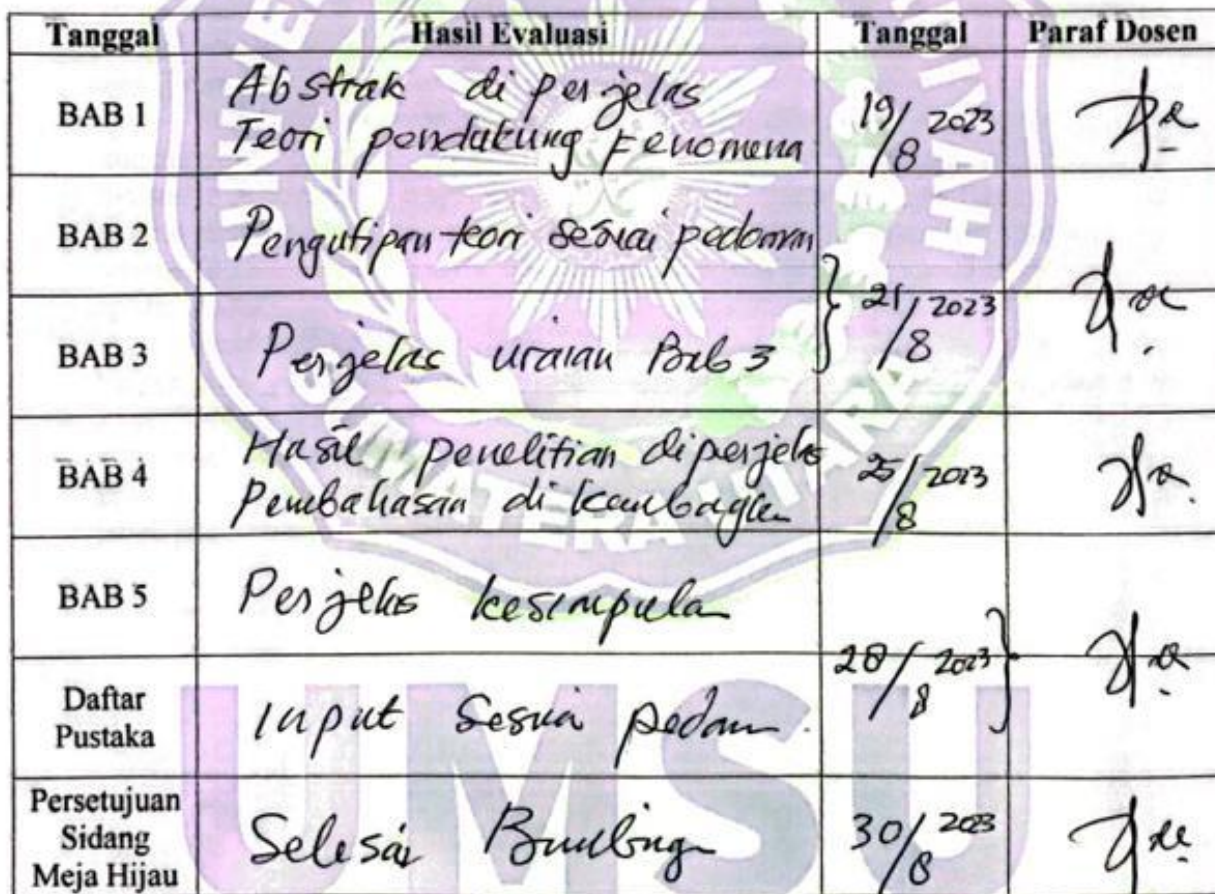 Tanggal Hasil Evaluasi Tanggal Paraf Dosen
BAB 1
Abstrak di perjelas
Teori pendukung Fenomena
19/8 2023
BAB 2
Pengutipan teori sesuai pedoman
BAB 3
Perjelas uraian Bab 3
21/8 2023
BAB 4
Hasil penelitian diperjelas
Pembahasan di kembangkan
25/8 2023
BAB 5
Perjelas kesimpulan
28/8 2023
Daftar
Pustaka
Input sesuai pedoman
Persetujuan
Sidang
Meja Hijau
Selesai Bimbingan
30/8 2023
SUMATERA UTARA
UMSU